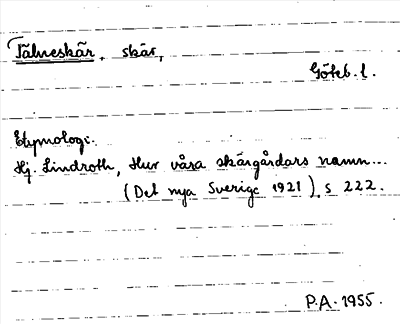 Tälneskär, skär,
Göteb. l.
Etymologi.
Hj. Lindroth, Hur våra skärgårdars namn...
(Det nya Sverige 1921), s 222.
P.A. 1955.